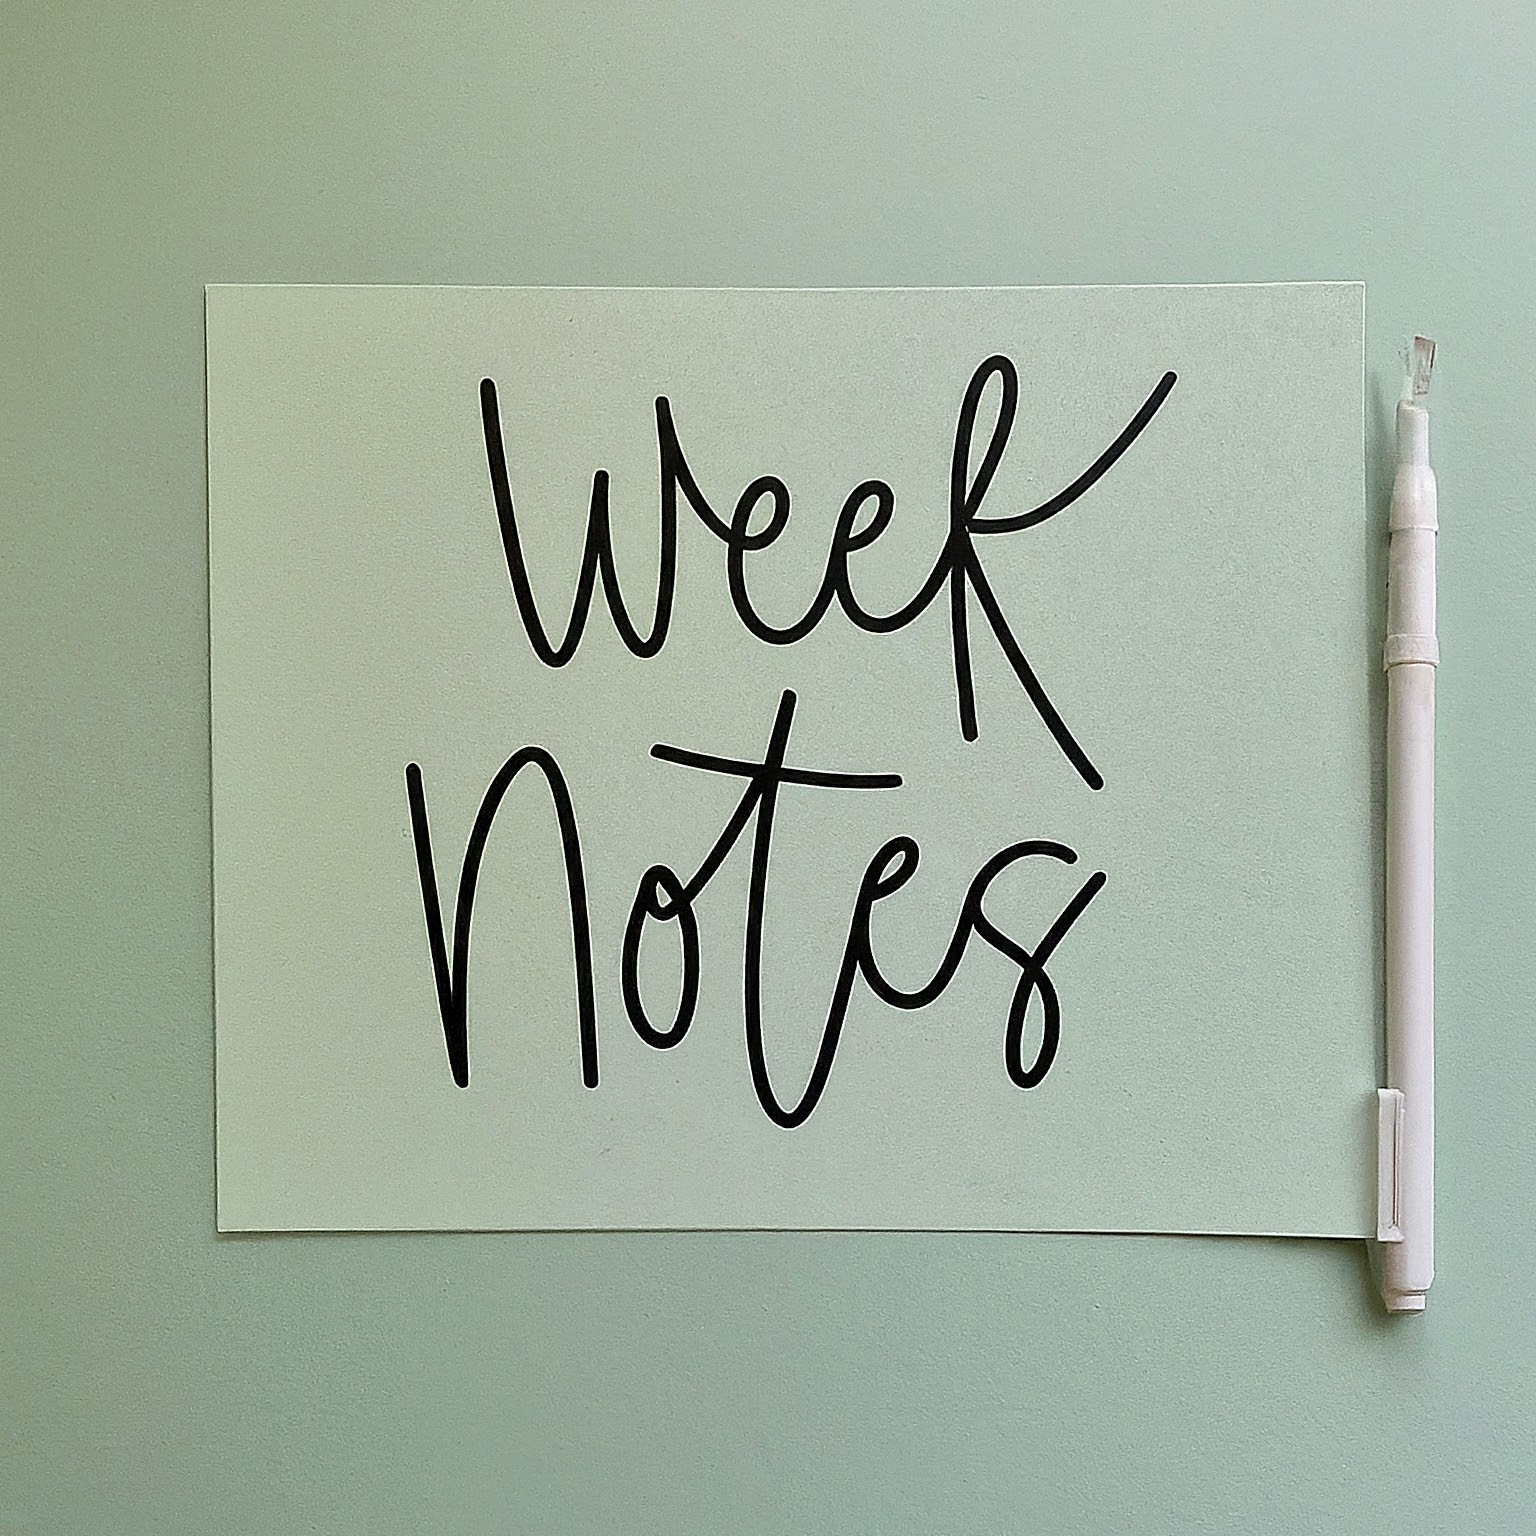 Week
Notes